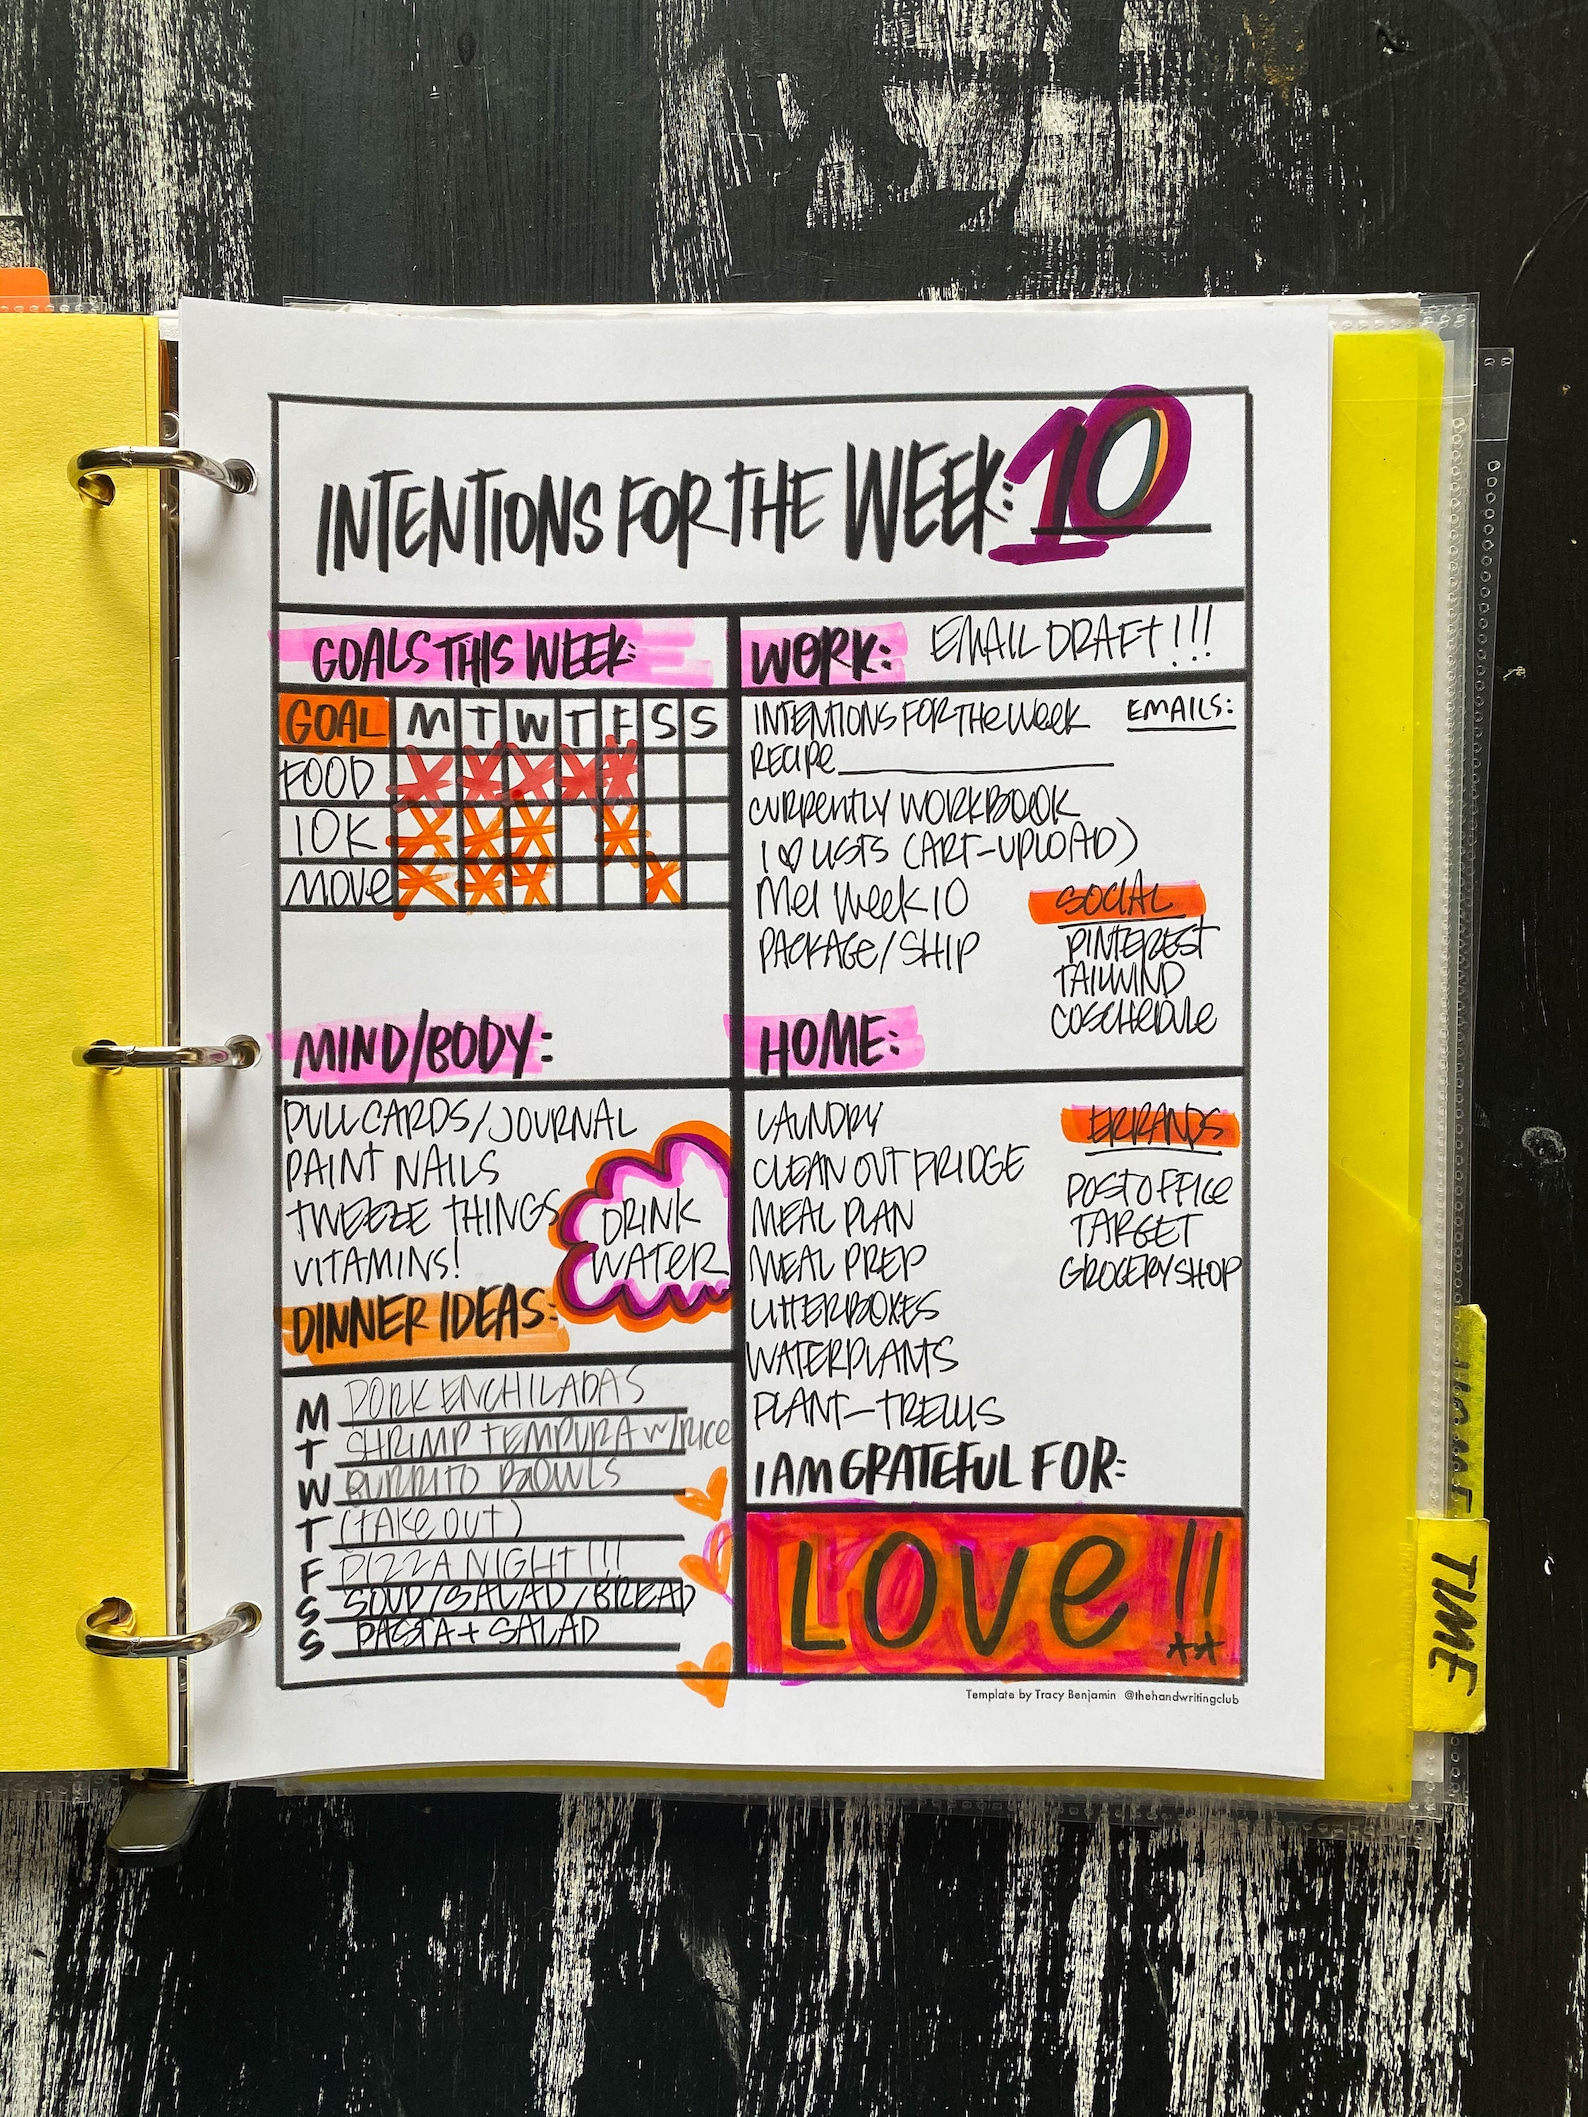 INTENTIONS FOR THE WEEK: 10
GOALS THIS WEEK:
GOAL M T W T F S S
FOOD
10K
MOVE
MIND/BODY:
PULL CARDS/JOURNAL
PAINT NAILS
TWEEZE THINGS
VITAMINS!
DRINK
WATER
DINNER IDEAS:
M PORK ENCHILADAS
T SHRIMP TEMPURA W/RICE
W BURRITO BOWLS
T (TAKE OUT)
F PIZZA NIGHT!!!
S SOUP/SALAD/BREAD
S PASTA + SALAD
WORK: EMAIL DRAFT!!!
INTENTIONS FOR THE WEEK
RECIPE
CURRENTLY WORKBOOK
I ♡ LISTS (ART-UPLOAD)
MEL WEEK 10
PACKAGE/SHIP
EMAILS:
SOCIAL
PINTEREST
TAILWIND
COSCHEDULE
HOME:
LAUNDRY
CLEAN OUT FRIDGE
MEAL PLAN
MEAL PREP
LITTERBOXES
WATER PLANTS
PLANT-TRELLIS
ERRANDS
POST OFFICE
TARGET
GROCERY SHOP
I AM GRATEFUL FOR:
LOVE!!
Template by Tracy Benjamin @thehandwritingclub
HOME
TIME